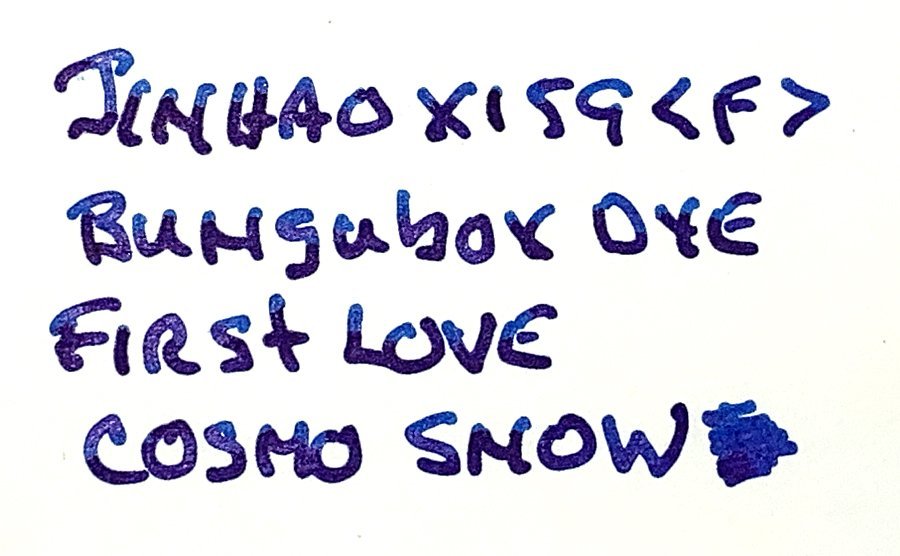 JINHAO X159 <F>
Bungubox DYE
FIRST LOVE
COSMO SNOW